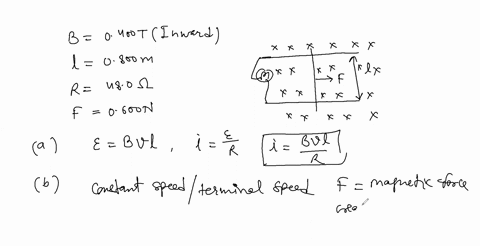 B = 0.400T (Inward)
l = 0.800m
R = 48.0 Ω
F = 0.600N
x x x x x x
x x x x F l x
x x x x x
x x x x
(a) ε = Bvl , i = ε/R i = Bvl/R
(b) constant speed/terminal speed F = magnetic force